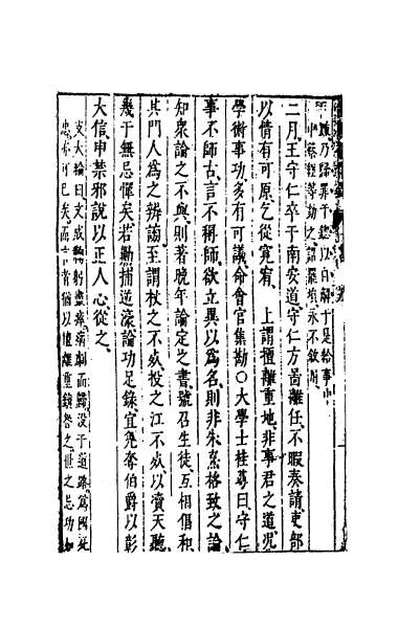 乃歸罪于鑑以自解于是給事中
中蔡經等劾之詔罷瑣永不敘用
二月王守仁卒于南安道守仁方啚離任不暇奏請吏部
以情有可原乞從寬宥　上謂擅離重地非事君之道況
學術事功多有可議命會官集勘○大學士桂萼曰守仁
事不師古言不稱師欲立異以爲名則非朱熹格致之論
知衆論之不與則著晚年論定之書號召生徒互相倡和
其門人爲之辨謗至謂杖之不死投之江不死以瀆天聽
幾于無忌憚矣若勦捕逆濠論功足錄宜免奪伯爵以彰
大信申禁邪說以正人心從之
支大綸曰文成躬盡瘁而歸沒于道路爲國死
忠亦可已矣而者猶以擅離重鎮咎之世之忌功如